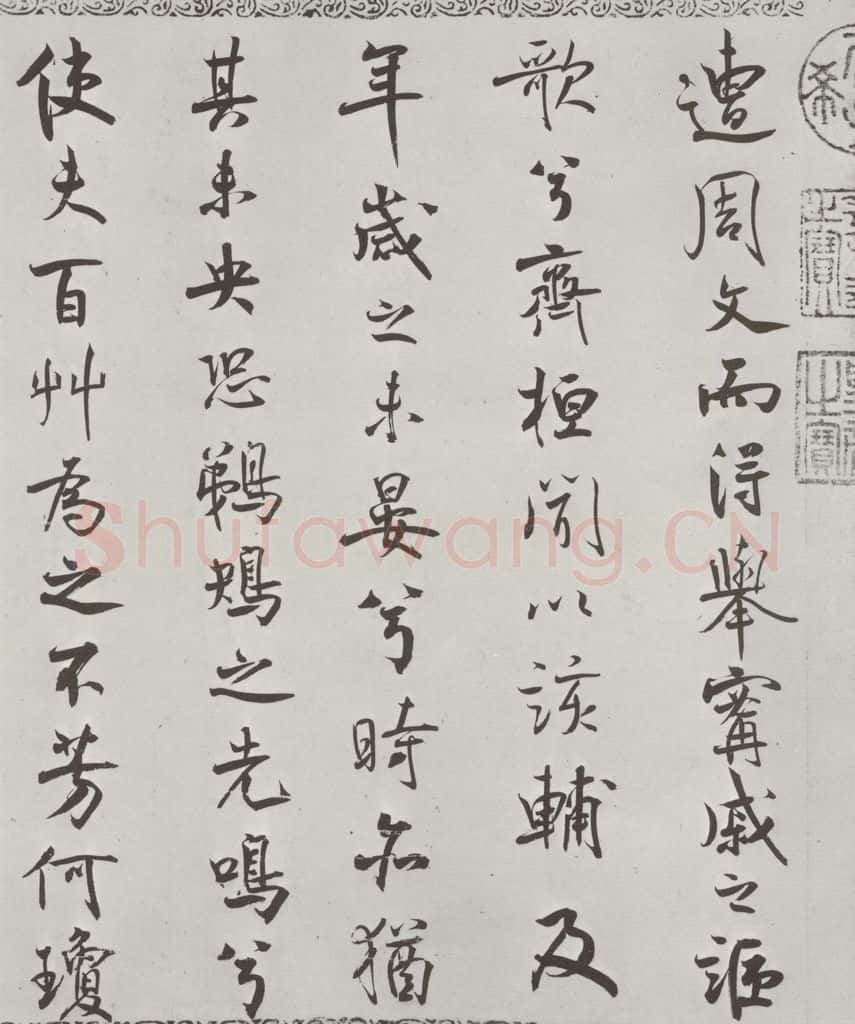 遭周文而得舉甯戚之謳
歌兮齊桓聞以該輔及
年歲之未晏兮時亦猶
其未央恐鵜鴂之先鳴兮
使夫百艸為之不芳何瓊
Shufawang.CN
之寶
之寶